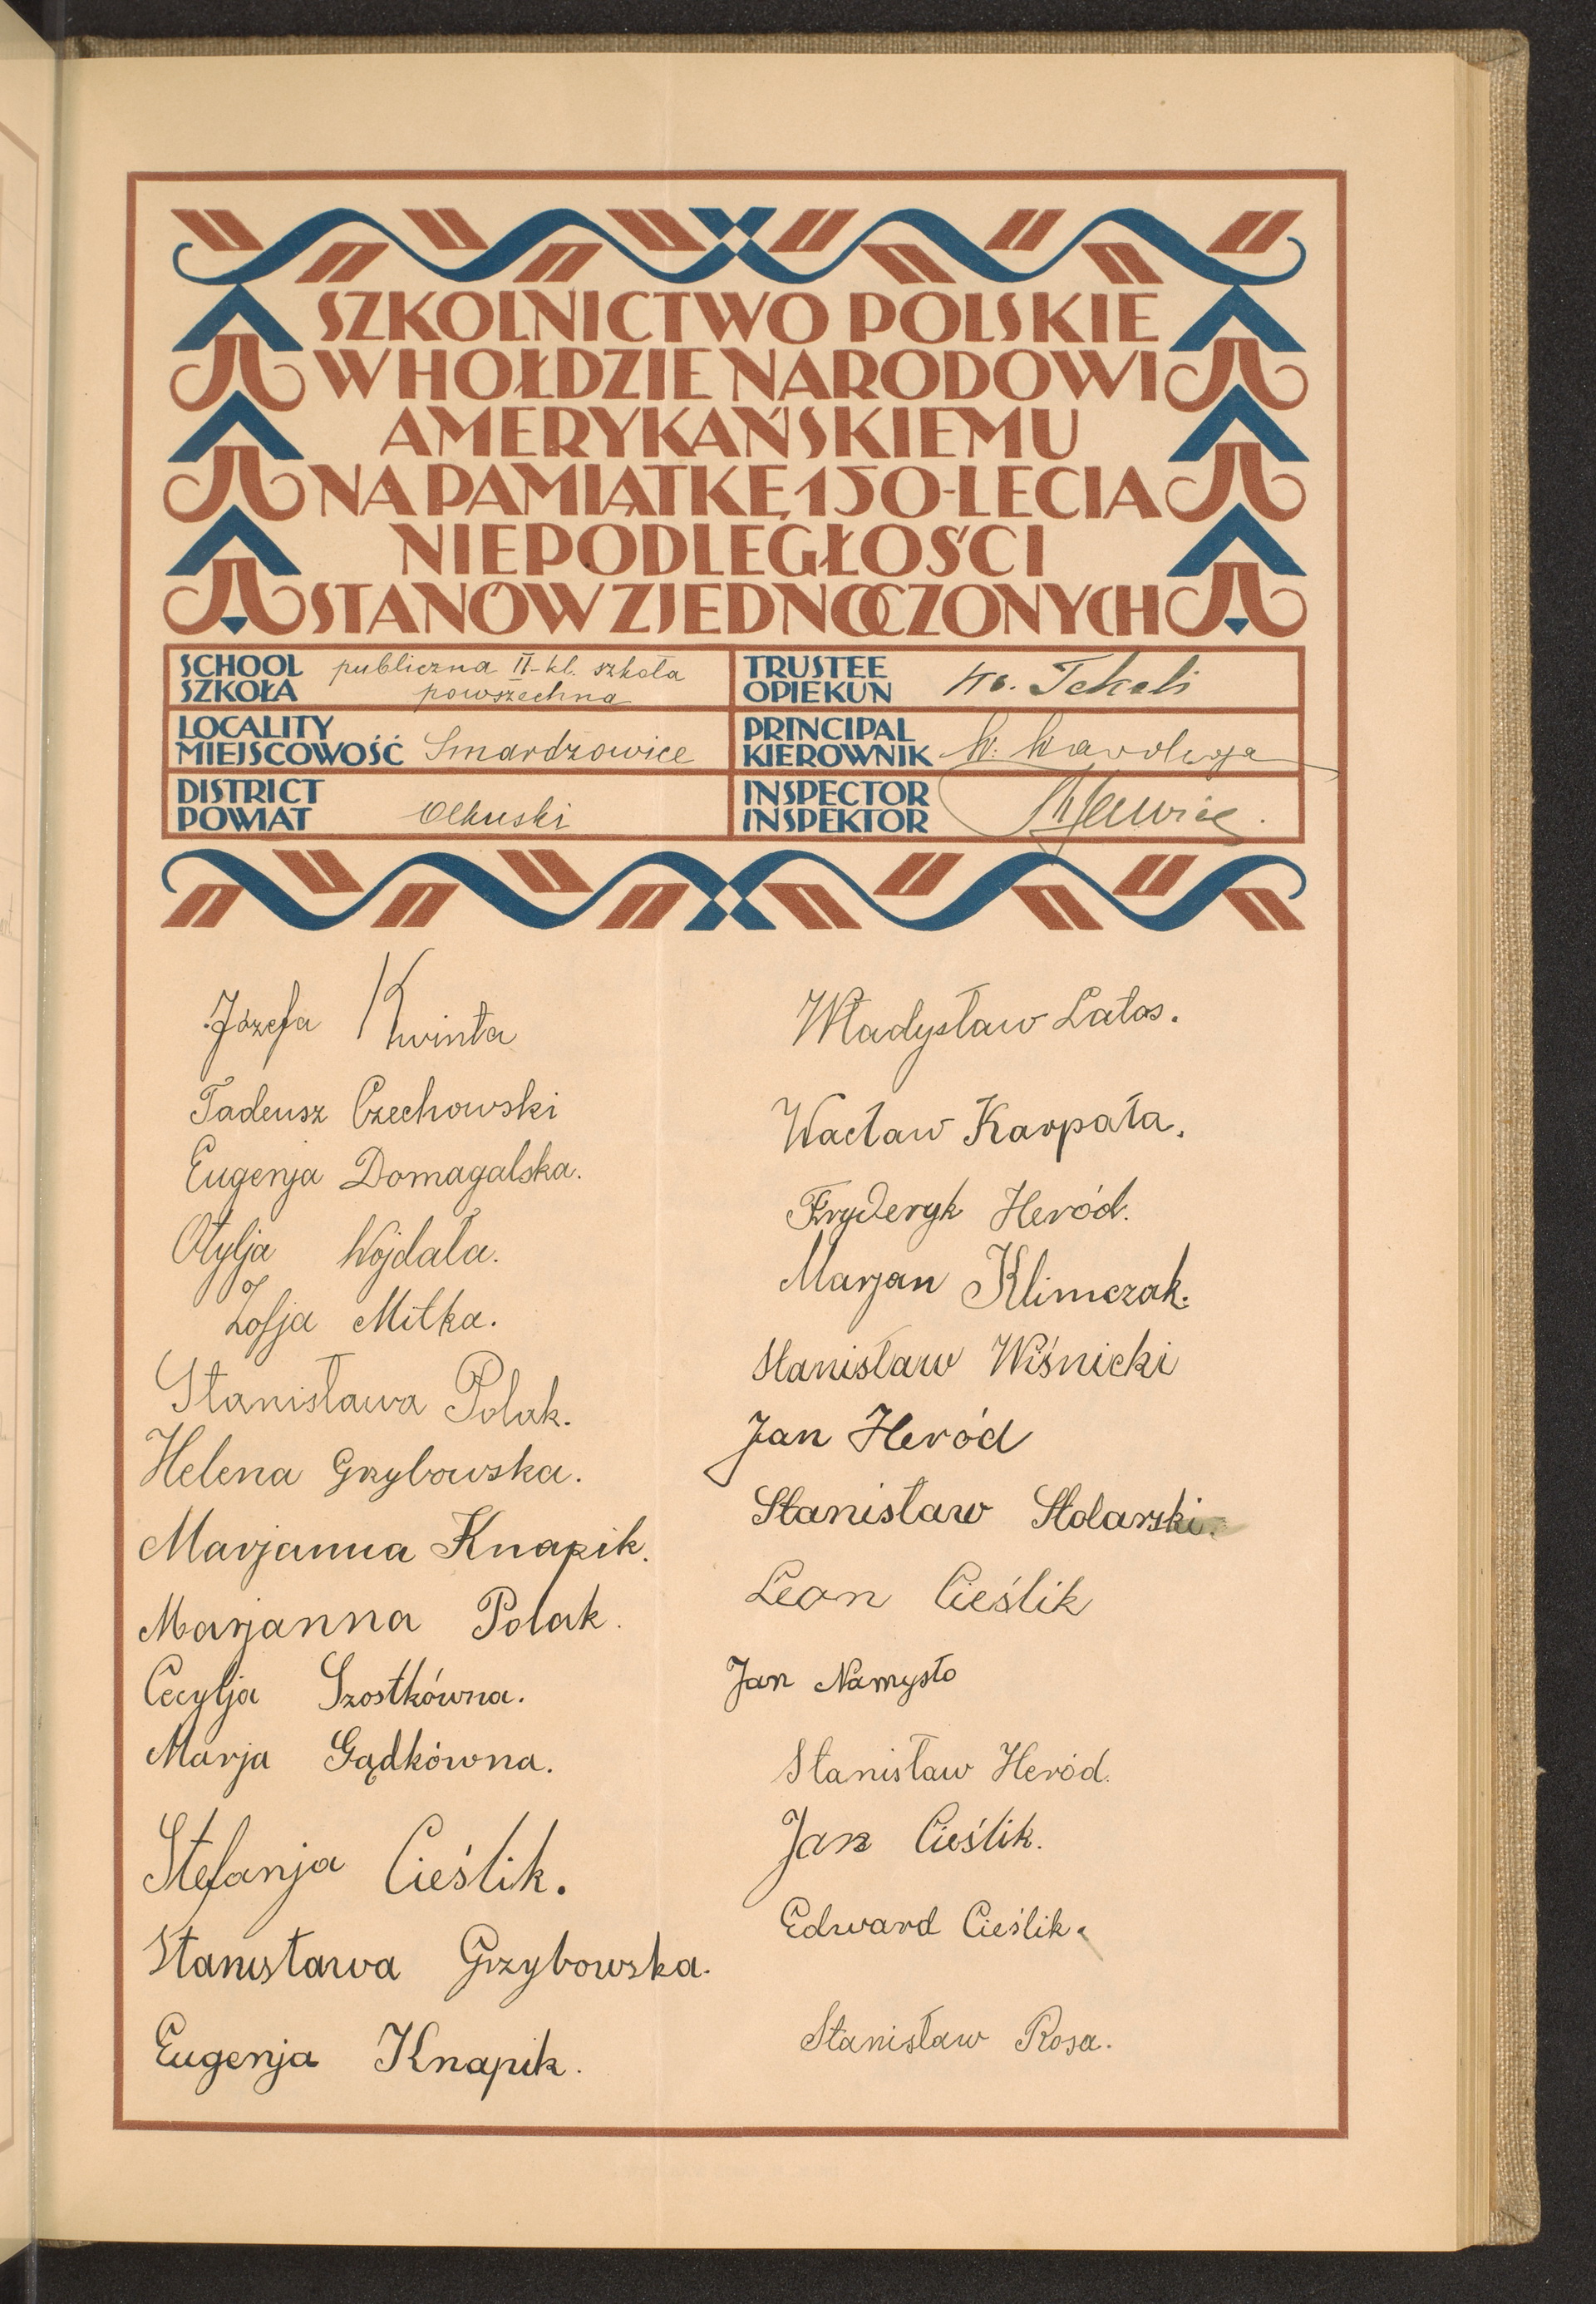 SZKOLNICTWO POLSKIE
W HOŁDZIE NARODOWI
AMERYKAŃSKIEMU
NA PAMIĄTKĘ 150-LECIA
NIEPODLEGŁOŚCI
STANÓW ZJEDNOCZONYCH
SCHOOL
SZKOŁA
publiczna II-kl. szkoła
powszechna
TRUSTEE
OPIEKUN
Tekeli
LOCALITY
MIEJSCOWOŚĆ
Smardzowice
PRINCIPAL
KIEROWNIK
W.
DISTRICT
POWIAT
Olkuski
INSPECTOR
INSPEKTOR
Józefa Kwinta
Tadeusz Czechowski
Eugenja Domagalska.
Otylja Wójdała.
Zofja Miłka.
Stanisława Polak.
Helena Grzybowska.
Marjanna Knapik.
Marjanna Polak.
Cecylja Szostkówna.
Marja Gądkówna.
Stefanja Cieślik.
Stanisława Grzybowska.
Eugenja Knapik.
Władysław Latos.
Wacław Karpała.
Fryderyk Heród.
Marjan Klimczak.
Stanisław Wiśnicki
Jan Heród
Stanisław Stolarski.
Leon Cieślik
Jan Namysło
Stanisław Heród.
Jan Cieślik.
Edward Cieślik.
Stanisław Rosa.